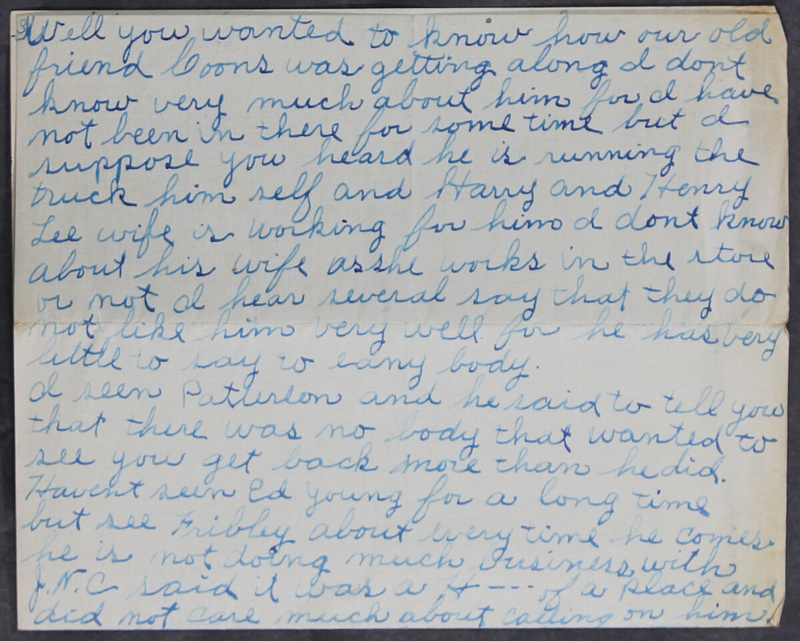 Well you wanted to know how our old
friend Coons was getting along I dont
know very much about him for I have
not been in there for some time but I
suppose you heard he is running the
truck him self and Harry and Henry
Lee wife is working for him I dont know
about his wife as she works in the store
or not I hear several say that they do
not like him very well for he has very
little to say to eany body.
I seen Patterson and he said to tell you
that there was no body that wanted to
see you get back more than he did.
Havent seen Ed Young for a long time
but see Fribley about every time he comes
he is not doing much business with
J.N.C said it was a H---- of a place and
did not care much about calling on him.